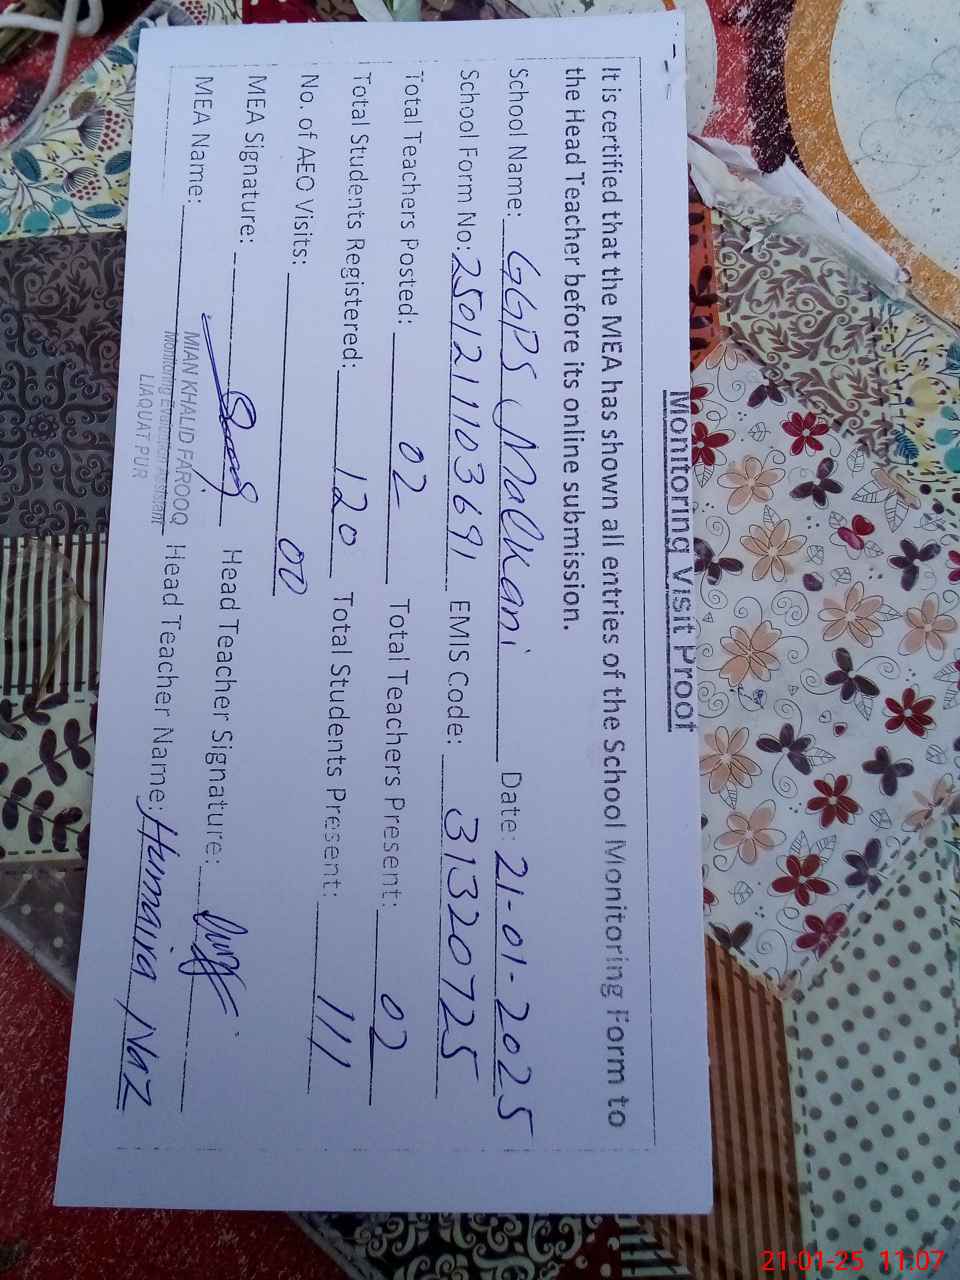 Monitoring Visit Proof
It is certified that the MEA has shown all entries of the School Monitoring Form to
the Head Teacher before its online submission.
School Name: GGPS Malkani Date: 21-01-2025
School Form No: 250121103691 EMIS Code: 31320725
Total Teachers Posted: 02 Total Teachers Present: 02
Total Students Registered: 120 Total Students Present: 111
No. of AEO Visits: 00
MEA Signature: Head Teacher Signature:
MEA Name: MIAN KHALID FAROOQ Head Teacher Name: Humaira Naz
Monitoring Evaluation Assistant
LIAQUAT PUR
21-01-25 11:07